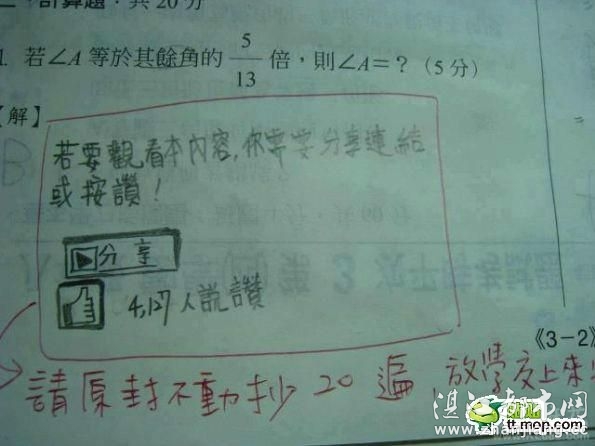 二、計算題：共20分
1. 若∠A 等於其餘角的 5/13 倍，則∠A=？(5分)
【解】
若要觀看本內容,你需要分享連結
或按讚！
分享
4,127人說讚
《3-2》
請原封不動抄20遍,放學交上來
湛江都市网
tt.mop.com